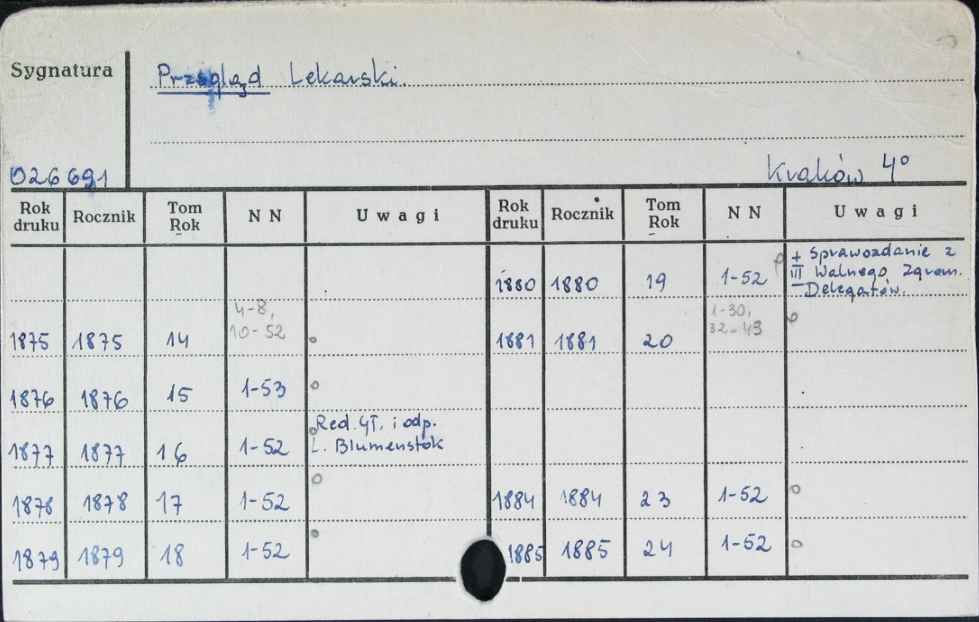 Sygnatura
Przegląd Lekarski.
026691
Kraków 4°
Rok druku Rocznik Tom Rok N N Uwagi
1875 1875 14 4-8, 10-52
1876 1876 15 1-53
1877 1877 16 1-52 Red. gł. i odp. L. Blumenstok
1878 1878 17 1-52
1879 1879 18 1-52
Rok druku Rocznik Tom Rok N N Uwagi
1880 1880 19 1-52 + Sprawozdanie z III Walnego Zgrom. Delegatów.
1881 1881 20 1-30, 32-43
1884 1884 23 1-52
1885 1885 24 1-52